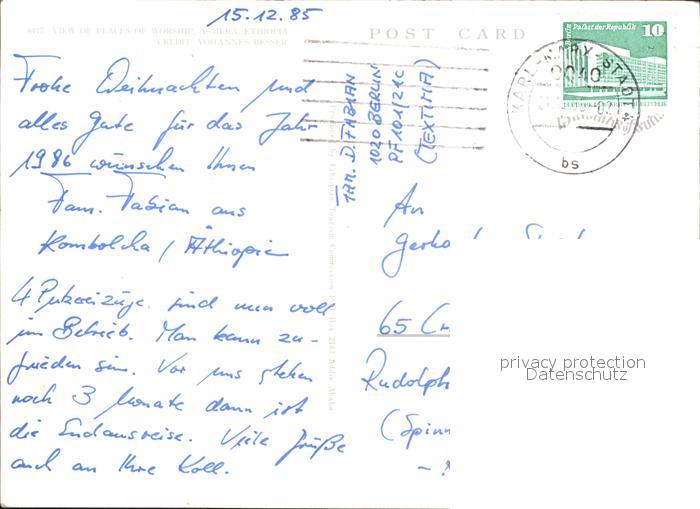 15.12.85
8417 VIEW OF PLACES OF WORSHIP, ASMERA, ETHIOPIA
CREDIT YOHANNES BESSER
POST CARD
Frohe Weihnachten und
alles Gute für das Jahr
1986 wünschen Ihnen
Fam. Fabian aus
Kombolcha / Äthiopien
4 Putzereizüge sind nun voll
im Betrieb. Man kann zu-
frieden sein. Vor uns stehen
noch 3 Monate dann ist
die Endausreise. Viele Grüße
auch an Ihre Koll.
D. FABIAN
1020 BERLIN
PF 101/21c
(TEXTIMA)
Ethiopian Tourist Commission P.O. Box 2183 Addis Ababa
An
65
Rudolph
(Spinn
Palast der Republik 10
KARL-MARX-STADT
bs
privacy protection
Datenschutz